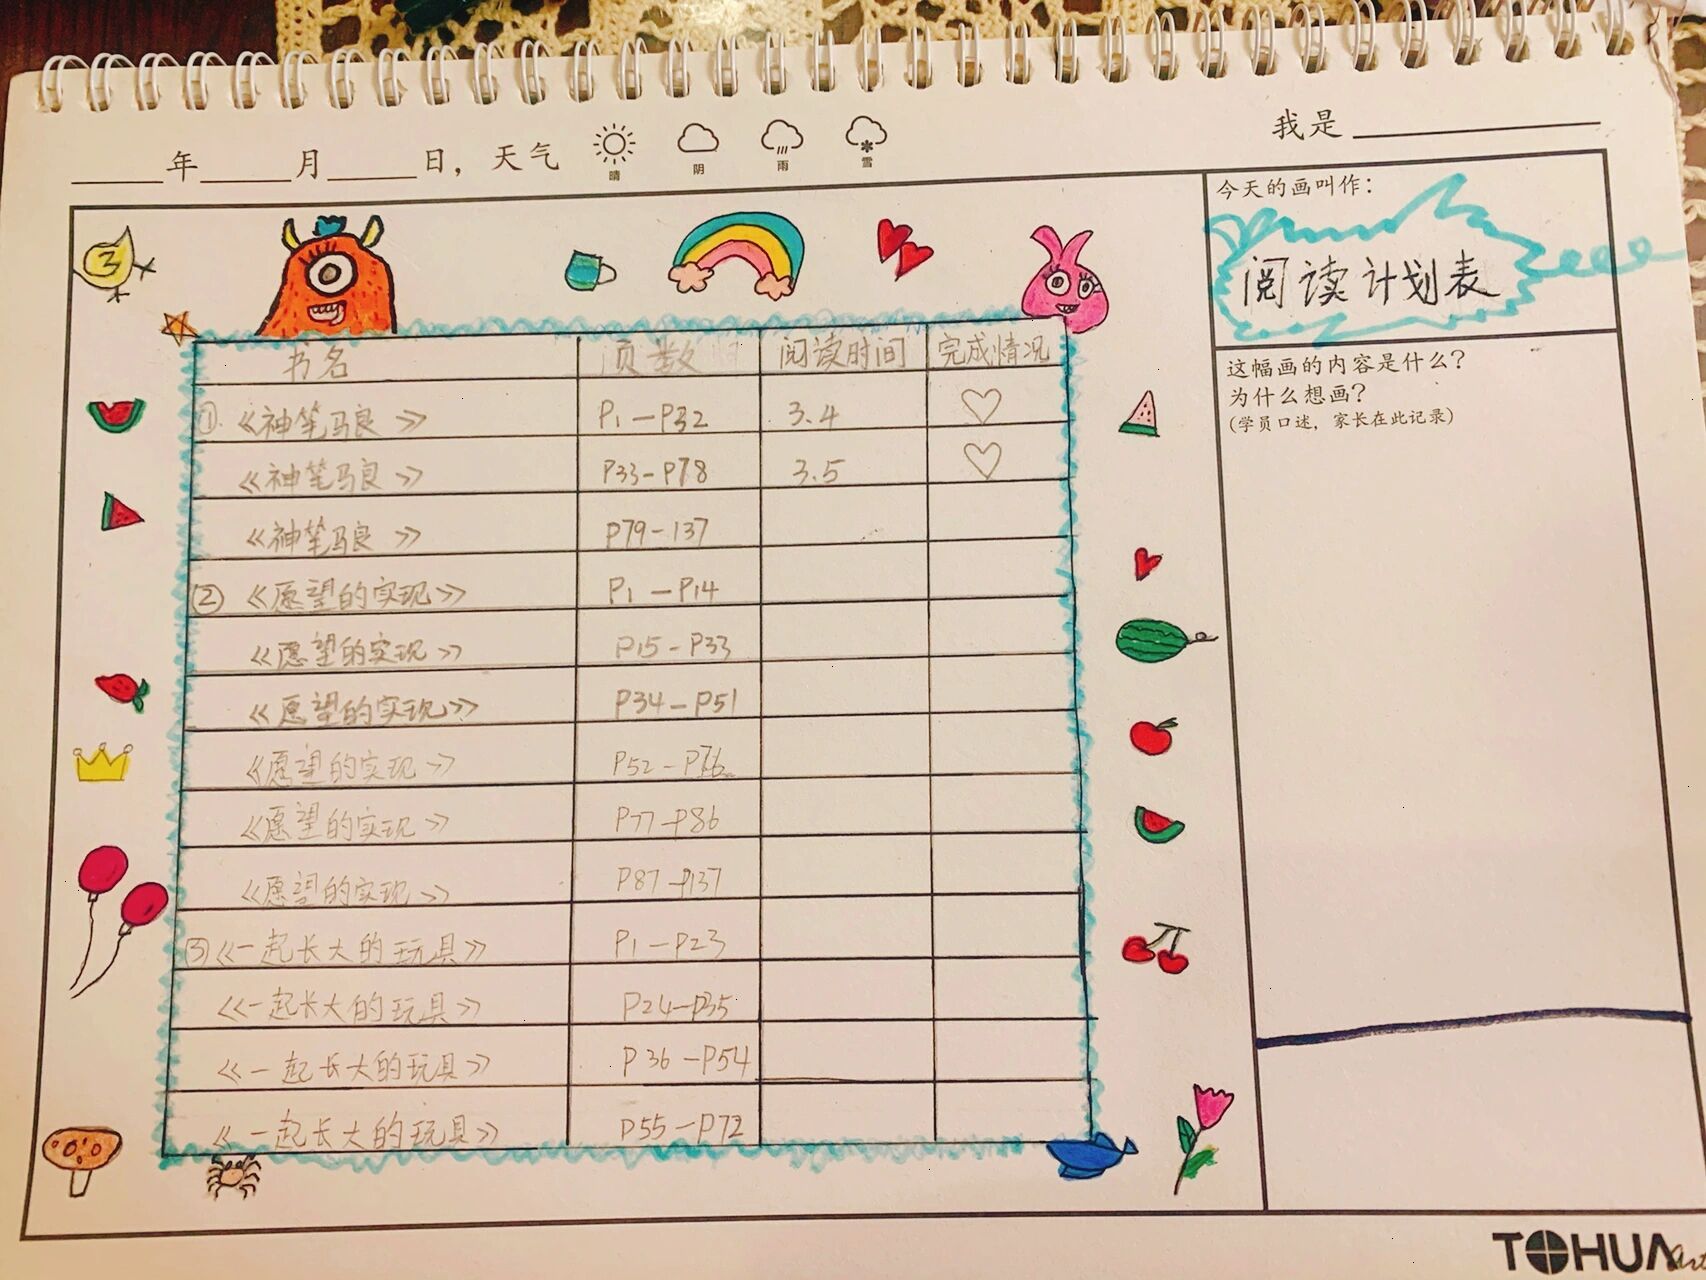 ____年____月____日，天气 晴 阴 雨 雪
我是
今天的画叫作：
阅读计划表
这幅画的内容是什么？
为什么想画？
(学员口述，家长在此记录)
3
书名 页数 阅读时间 完成情况
① 《神笔马良》 P1—P32 3.4 ♡
《神笔马良》 P33-P78 3.5 ♡
《神笔马良》 P79-137
② 《愿望的实现》 P1—P14
《愿望的实现》 P15-P33
《愿望的实现》 P34—P51
《愿望的实现》 P52-P76
《愿望的实现》 P77-P86
《愿望的实现》 P87-P137
③《一起长大的玩具》 P1—P23
《一起长大的玩具》 P24—P35
《一起长大的玩具》 P36—P54
《一起长大的玩具》 P55—P72
TOHUA art